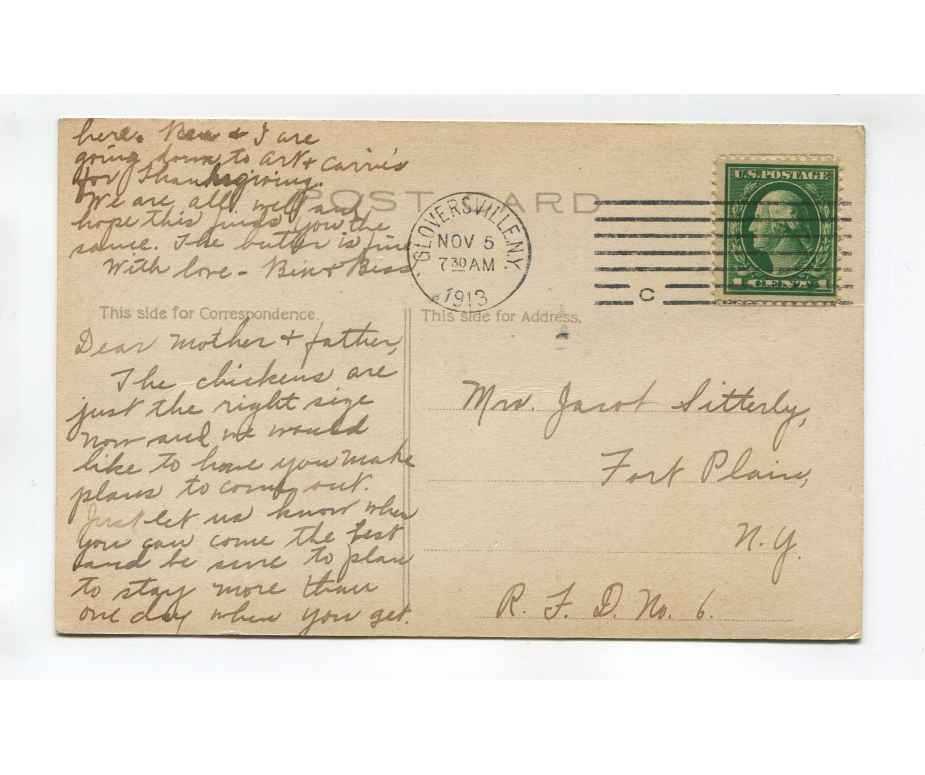 here. Ben & I are
going down to Art & Carrie's
for Thanksgiving.
We are all well and
hope this finds you the
same. The butter is fine
With love - Bess
POST CARD
GLOVERSVILLE, N.Y.
NOV 5
7 30 AM
1913
C
U.S. POSTAGE
1 CENT 1
This side for Correspondence.
This side for Address.
Dear Mother & father,
The chickens are
just the right size
now and we would
like to have you make
plans to come out.
Just let us know when
you can come the best
and be sure to plan
to stay more than
one day when you get.
Mrs. Jacob Sitterly,
Fort Plain,
N.Y.
R. F. D. No. 6.